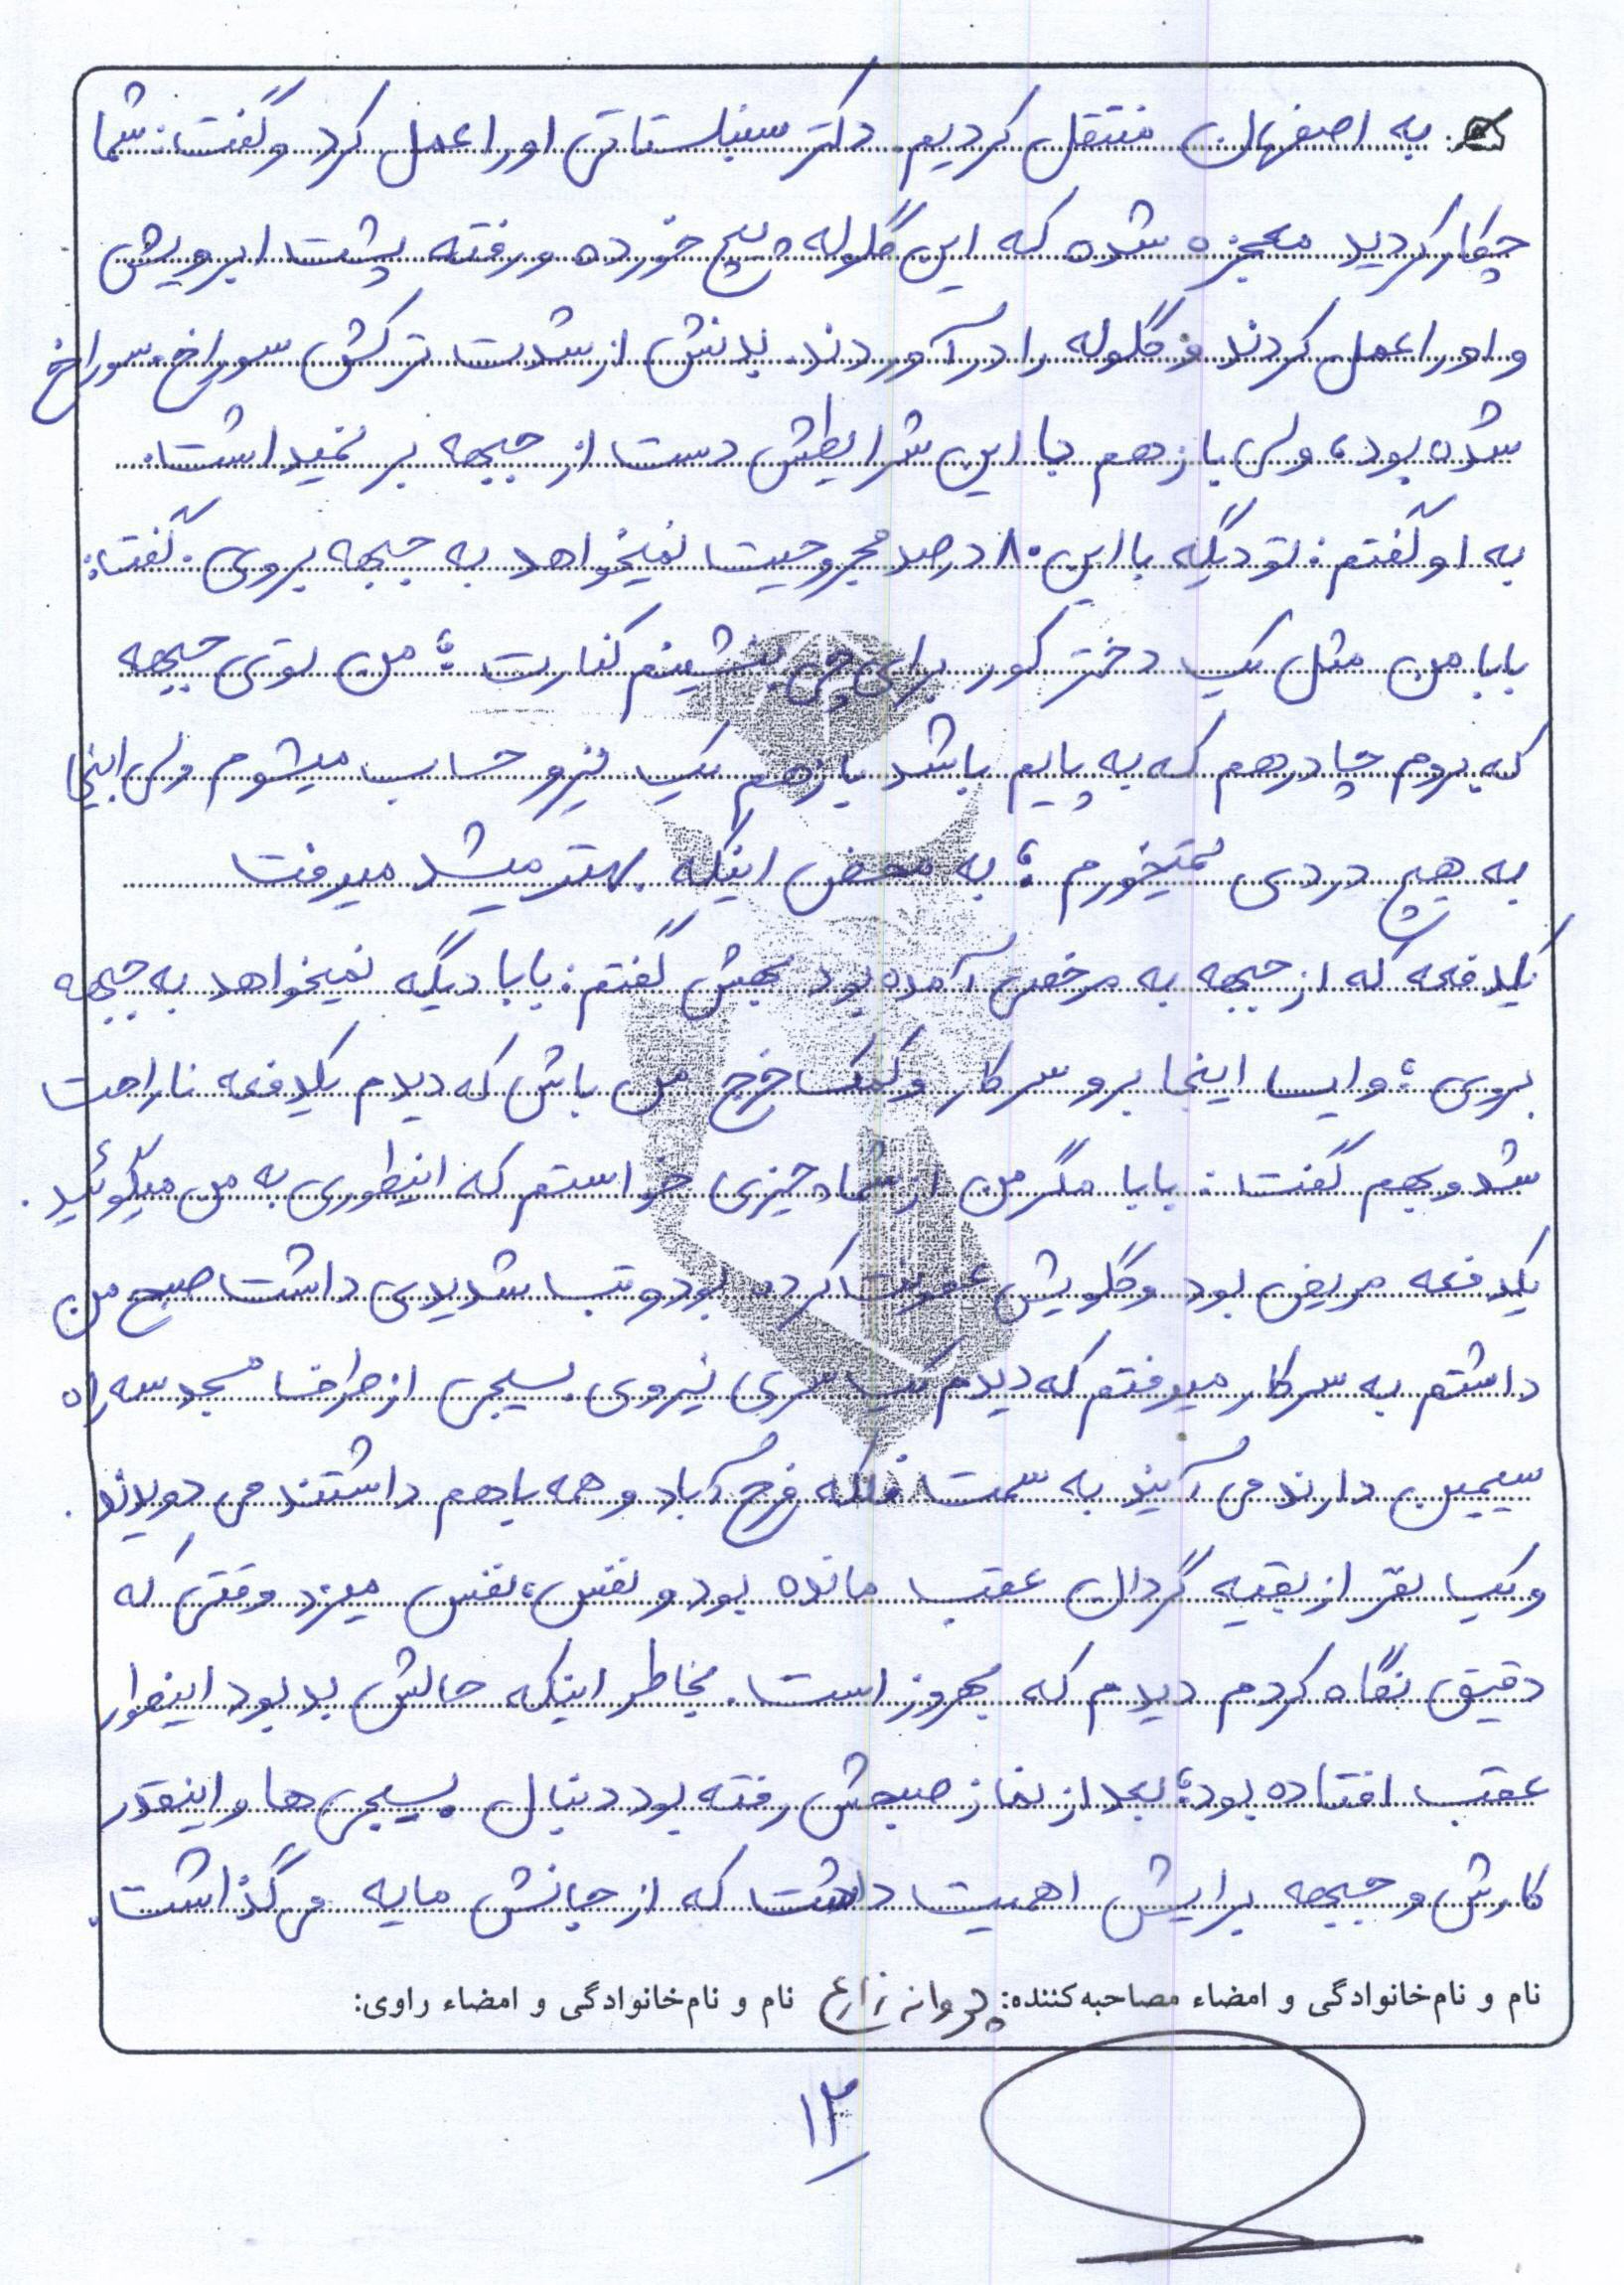 به اصفهان منتقل کردیم. دکتر سنبلستانی او را عمل کرد و گفت: شما
چکار کردید معجزه شده که این گلوله پیچ خورده و رفته پشت ابرویش
و او را عمل کردند و گلوله را درآوردند. بدنش از شدت ترکش سوراخ سوراخ
شده بود، ولی بازهم با این شرایطش دست از جبهه برنمیداشت.
به او گفتم: تو دیگه با این ۸۰ درصد مجروحیت نمیخواهد به جبهه بروی. گفت:
بابا من مثل یک دختر کور برای چی بنشینم کنارت؛ من توی جبهه
که بروم چادر هم که به پایم باشد بازهم یک نیرو حساب میشوم ولی اینجا
به هیچ دردی نمیخورم؛ به محض اینکه بهتر میشد میرفت
یکدفعه که از جبهه به مرخصی آمده بود بهش گفتم: بابا دیگه نمیخواهد به جبهه
بروی؛ وایسا اینجا برو سر کار و کمک خرج من باش که دیدم یکدفعه ناراحت
شد و بهم گفت: بابا مگر من از شما چیزی خواستم که اینطوری به من میگوئید.
یکدفعه مریض بود و گلویش عفونت کرده بود و تب شدیدی داشت صبح من
داشتم به سرکار میرفتم که دیدم یک سری نیروی بسیجی از طرف مسجد سه راه
سیمین دارند می آیند به سمت فلکه فرح آباد و همه باهم داشتند می دویدند.
و یک نفر از بقیه گردان عقب مانده بود و نفس، نفس میزد وقتی که
دقیق نگاه کردم دیدم که بهروز است. بخاطر اینکه حالش بد بود اینطور
عقب افتاده بود؛ بعد از نماز صبحش رفته بود دنبال بسیجی ها و اینقدر
کارش و جبهه برایش اهمیت داشت که از جانش مایه می گذاشت.
نام و نام‌خانوادگی و امضاء مصاحبه‌کننده: پروانه زارع نام و نام‌خانوادگی و امضاء راوی:
۱۲